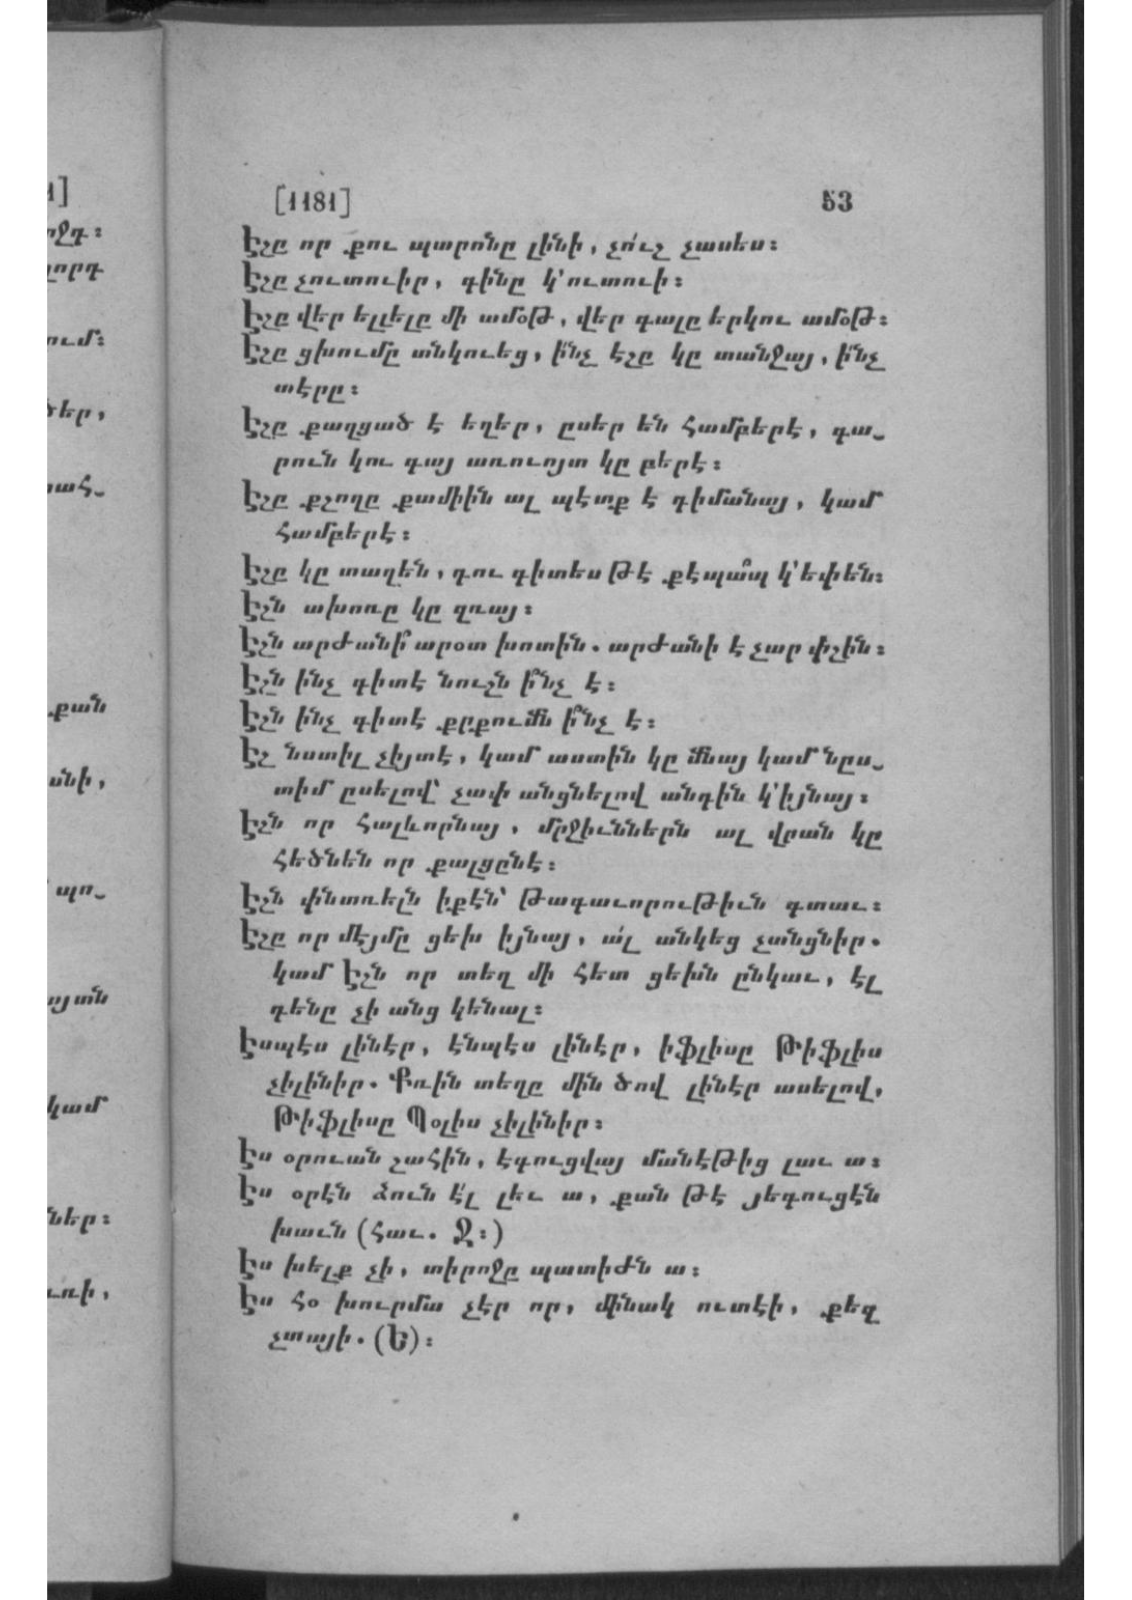 [1181] 53
Էշը որ քու պարոնը լինի, չո՛ւշ չասես։
Էշը չուտուիր, գինը կ՚ուտուի։
Էշը վեր ելլելը մի ամօթ, վեր գալը երկու ամօթ։
Էշը ցխումը տնկուեց, ի՛նչ էշը կը տանջայ, ի՛նչ
տէրը։
Էշը քաղցած է եղեր, ըսեր են համբերէ, գա-
րուն կու գայ առուոյտ կը բերէ։
Էշը քշողը քամիին ալ պէտք է դիմանայ, կամ
համբերէ։
Էշը կը տաղեն, դու գիտես թէ քէպա՞պ կ՚եփեն։
Էշն ախոռը կը զռայ։
Էշն արժանի՞ արօտ խոտին. արժանի է չար փշին։
Էշն ինչ գիտէ նուշն ի՞նչ է։
Էշն ինչ գիտէ քրքումն ի՞նչ է։
Էշ նստիլ չիյտէ, կամ աստին կը մնայ կամ նըս-
տիմ ըսելով՝ չափ անցնելով անդին կ՚իյնայ։
Էշն որ հալևորնայ, մրջիւններն ալ վրան կը
հեծնեն որ քալցընէ։
Էշն փնտռելն իքէն՝ թագաւորութիւն գտաւ։
Էշը որ մէյմը ցեխ իյնայ, ա՛լ անկեց չանցնիր.
կամ Էշն որ տեղ մի հետ ցեխն ընկաւ, էլ
դենը չի անց կենալ։
Էսպէս լինէր, էնպէս լինէր, իֆլիսը Թիֆլիս
չիլինիր. Քռին տեղը մին ծով լինէր ասելով,
Թիֆլիսը Պօլիս չիլինիր։
Էս օրուան շահին, էգուցվայ մանէթից լաւ ա։
Էս օրէն ձուն է՛լ լեւ ա, քան թէ յեգուցէն
խաւն (հաւ. Ջ։)
Էս խելք չի, տիրոջը պատիժն ա։
Էս հօ խուրմա չէր որ, մինակ ուտէի, քեզ
չտայի. (Ե)։